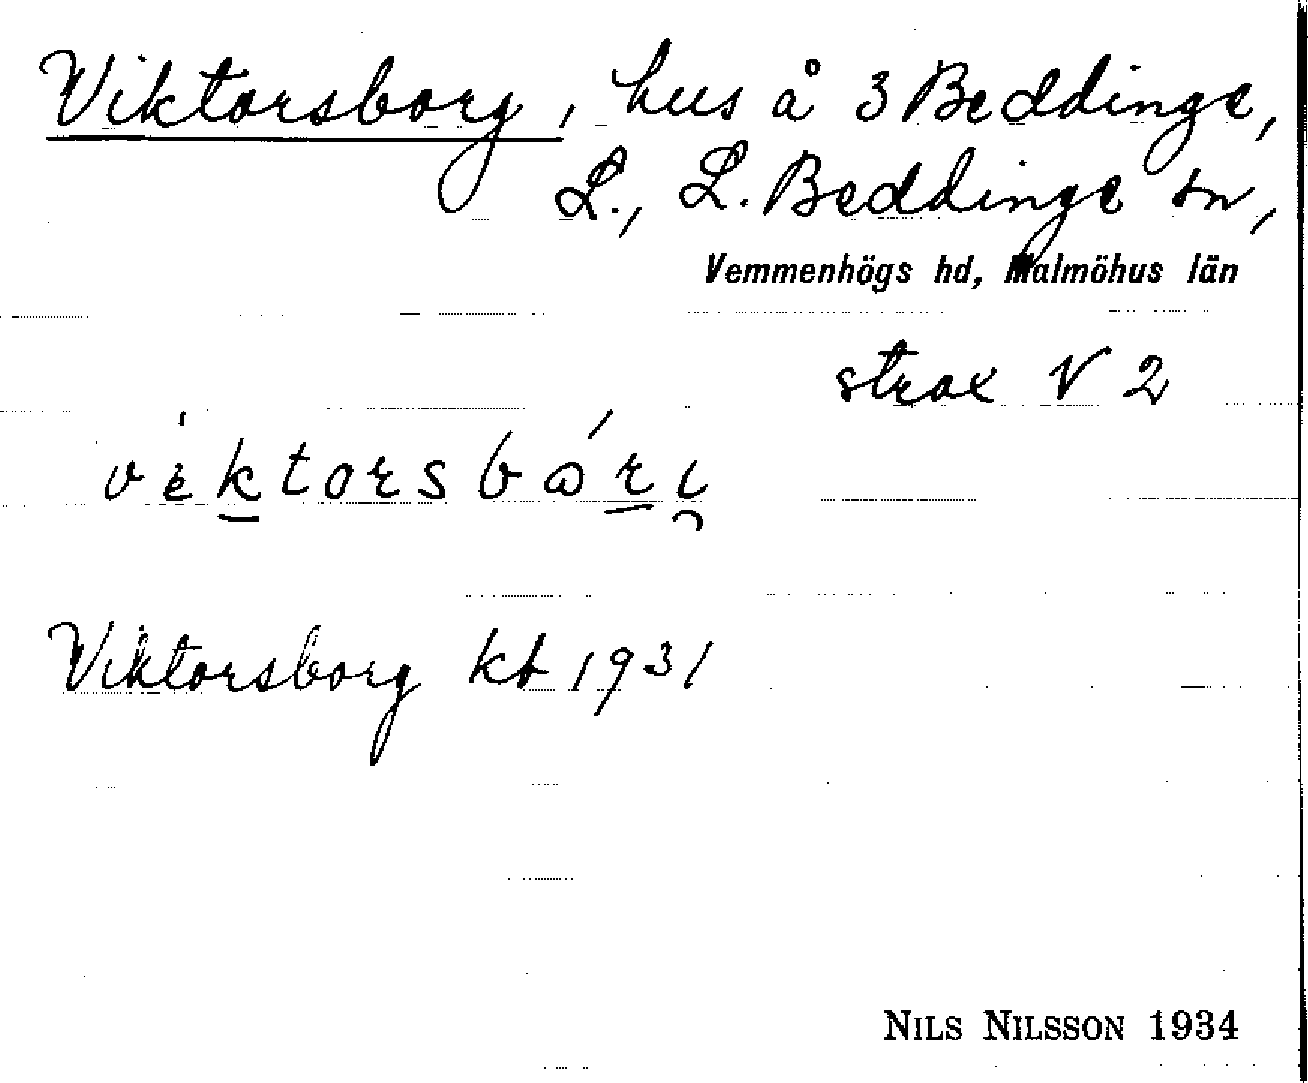 Viktorsborg, hus å 3 Beddinge,
L., L. Beddinge sn,
Vemmenhögs hd, Malmöhus län
strax V 2
vèktorsbóri
Viktorsborg kb 1931
NILS NILSSON 1934